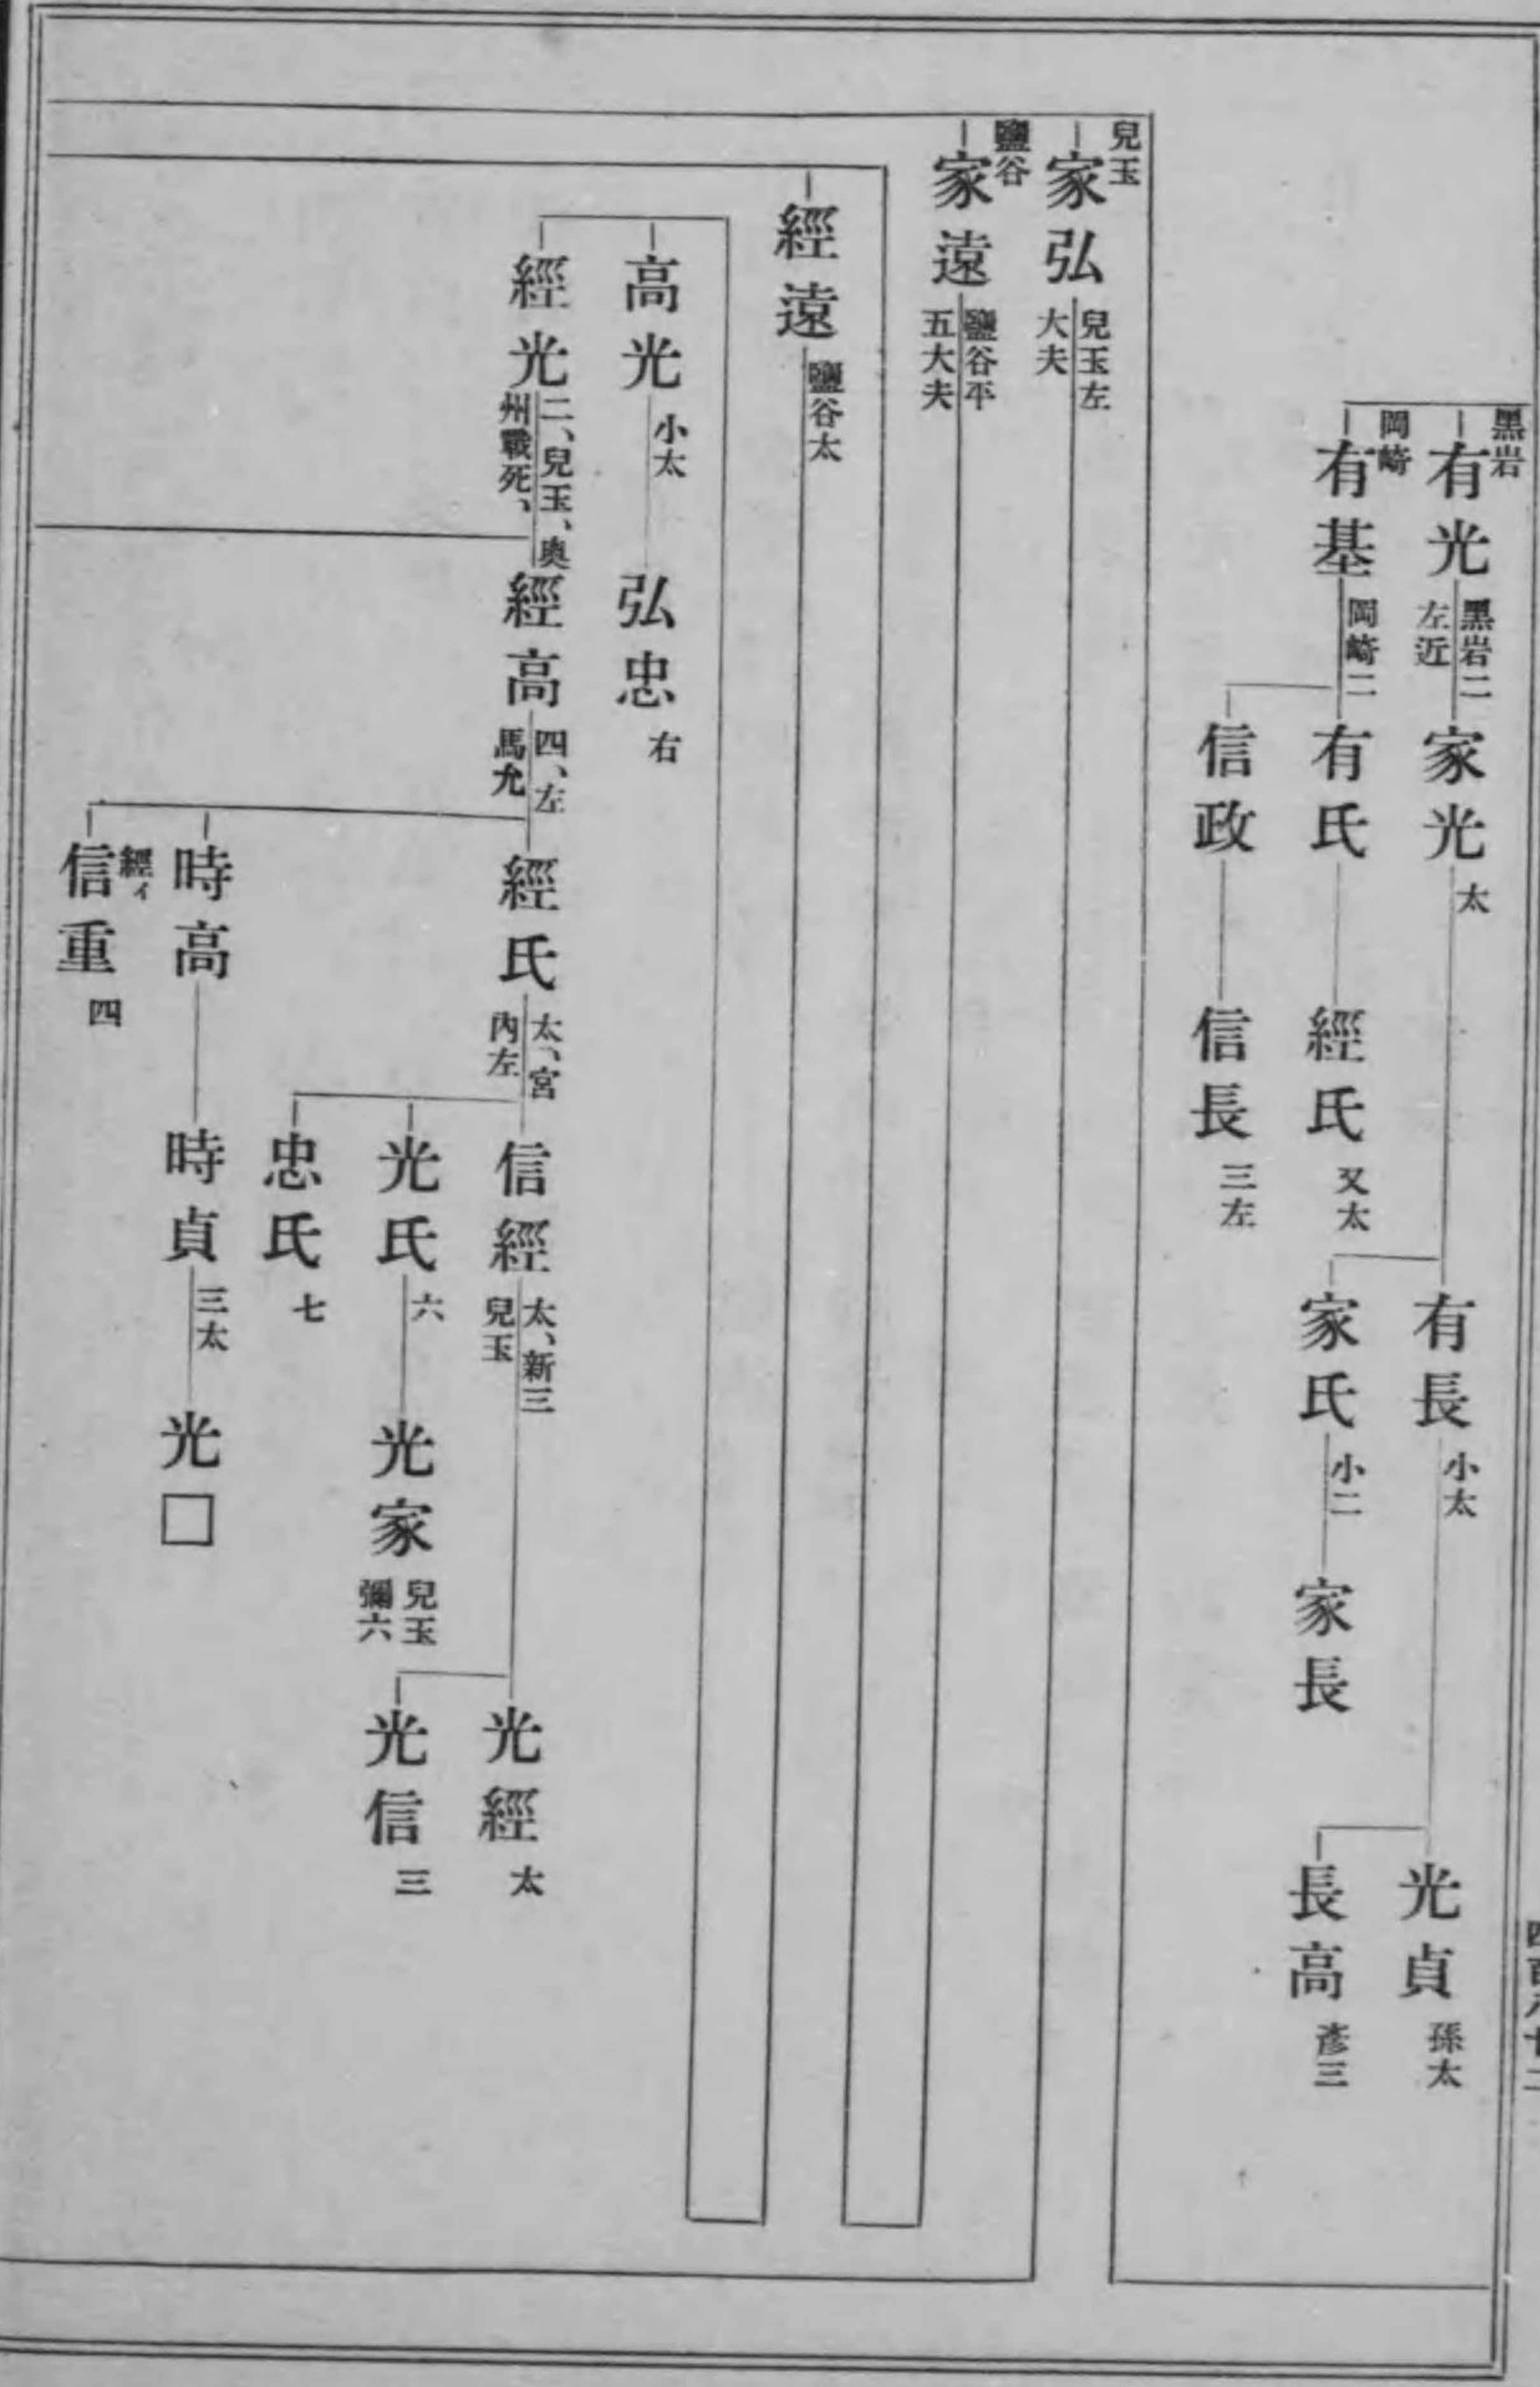 黑岩
有光
黑岩二
左近
家光
太
有長
小太
光貞
孫太
長高
彥三
家氏
小二
家長
岡崎
有基
岡崎二
有氏
經氏
又太
信政
信長
三左
兒玉
家弘
兒玉左
大夫
鹽谷
家遠
鹽谷平
五大夫
經遠
鹽谷太
高光
小太
弘忠
右
經光
二、兒玉、奧
州戰死、
經高
四、左
馬允
經氏
太、宮
內左
信經
太、新三
兒玉
光經
太
光信
三
光氏
六
光家
兒玉
彌六
忠氏
七
時高
時貞
三太
光□
經イ
信重
四